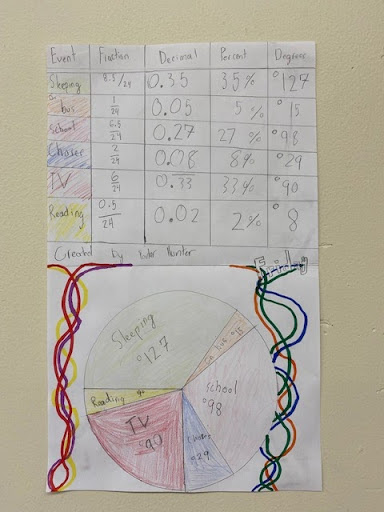 Event Fraction Decimal Percent Degrees
Sleeping 8.5/24 0.35 35% °127
On bus 1/24 0.05 5% °15
school 6.5/24 0.27 27% °98
Chores 2/24 0.08 8% °29
TV 6/24 0.33 33% °90
Reading 0.5/24 0.02 2% °8
Created by Hunter
Friday
Sleeping
°127
school
°98
Reading
TV
Chores
°29